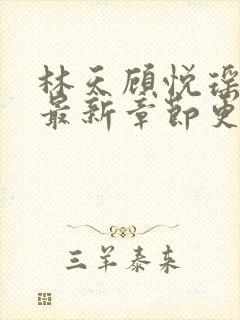 林天顾悦瑶
最新章节更
三羊泰来